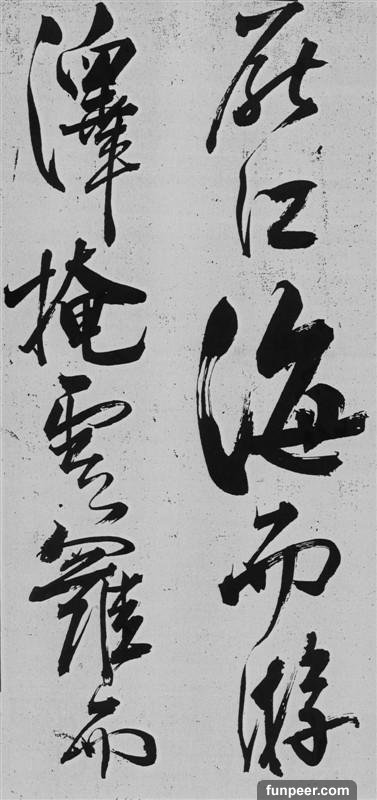 厭江海而游
澤掩雲羅而
funpeer.com